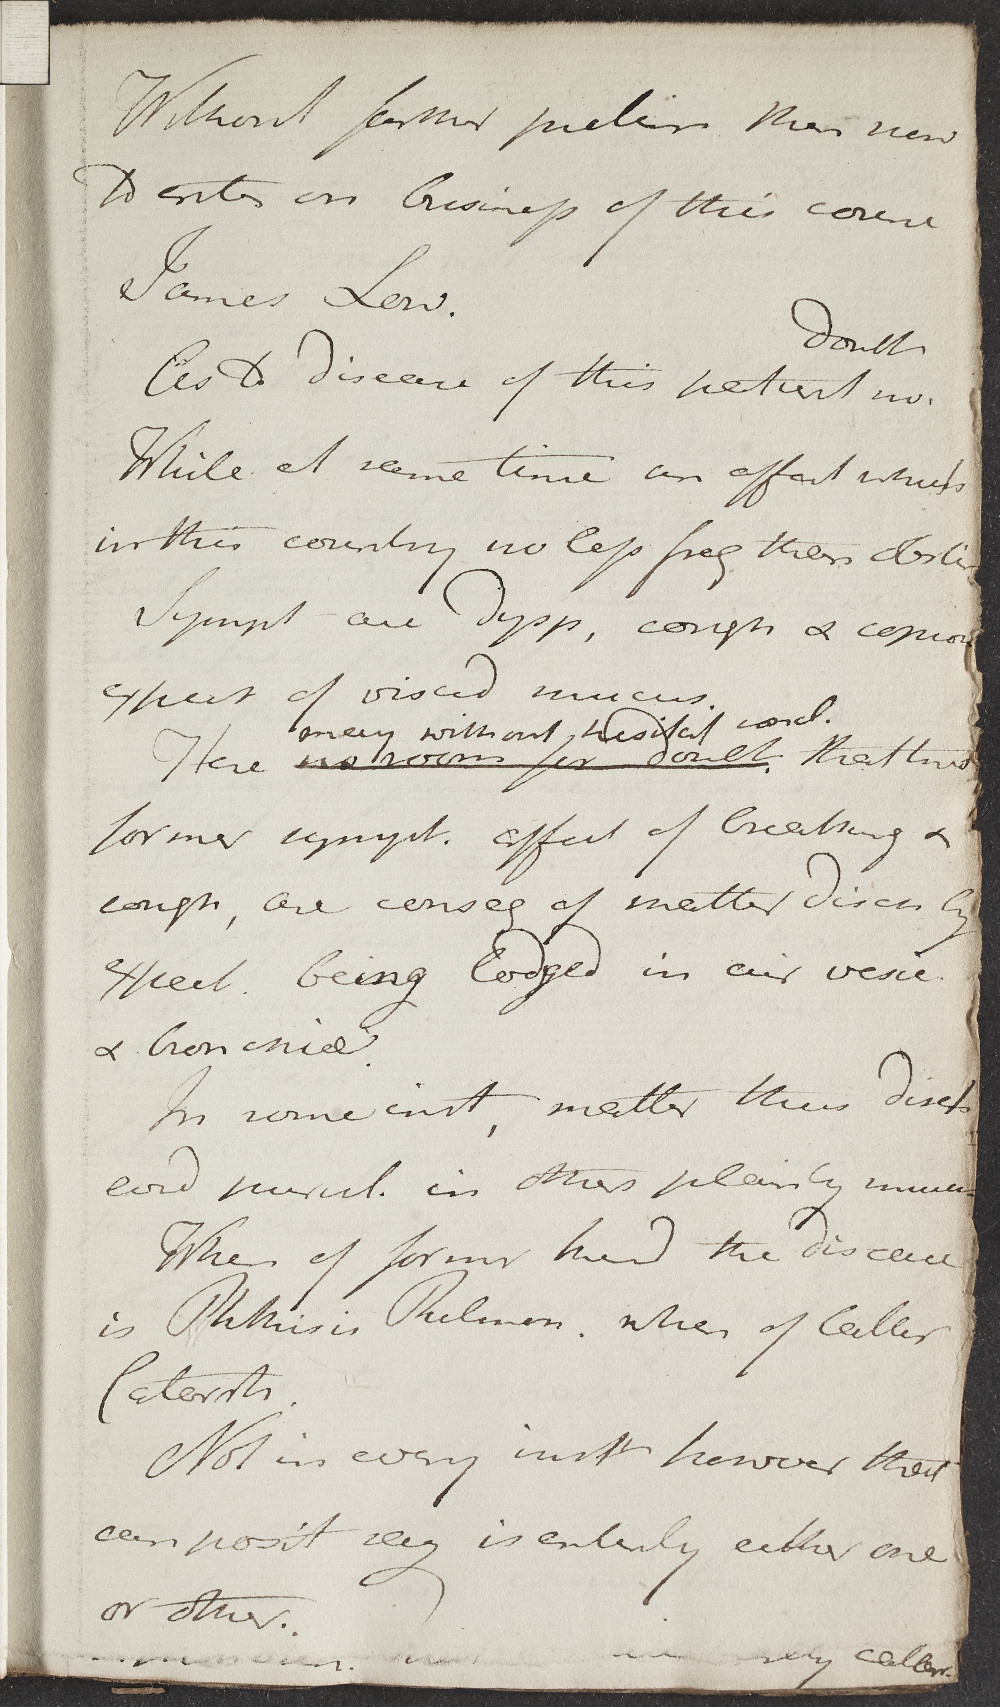 Without farther prelim than now
to enter on business of this course
James Low.
As to disease of this patient no doubt
While at same time an affect which
in this country no less freq than obstin
Sympt are dysp, cough & copious
expect of viscid mucus.
Here may without hesitat concl.
no room for doubt. that two
former sympt. affect of breathing &
cough, are conseq of matter disch by
expect. being lodged in air vesic
& bronchiæ.
In some inst, matter thus disch
evid purul. in others plainly mucus
When of former kind the disease
is Phthisis Pulmon. when of latter
Catarrh.
Not in every inst however that
can posit say is entirely either one
or other.
very